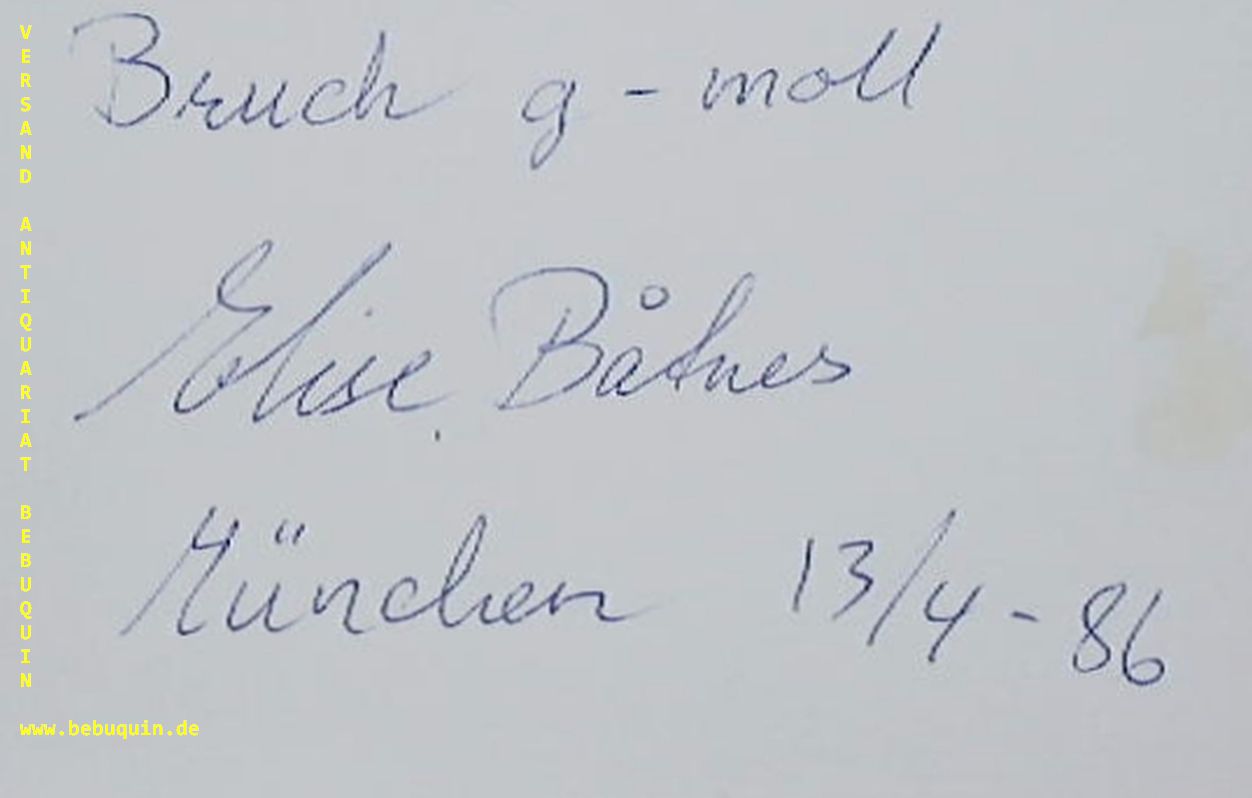 Bruch g - moll
Elise Båtnes
München 13/4 - 86
VERSAND ANTIQUARIAT BEBUQUIN
www.bebuquin.de